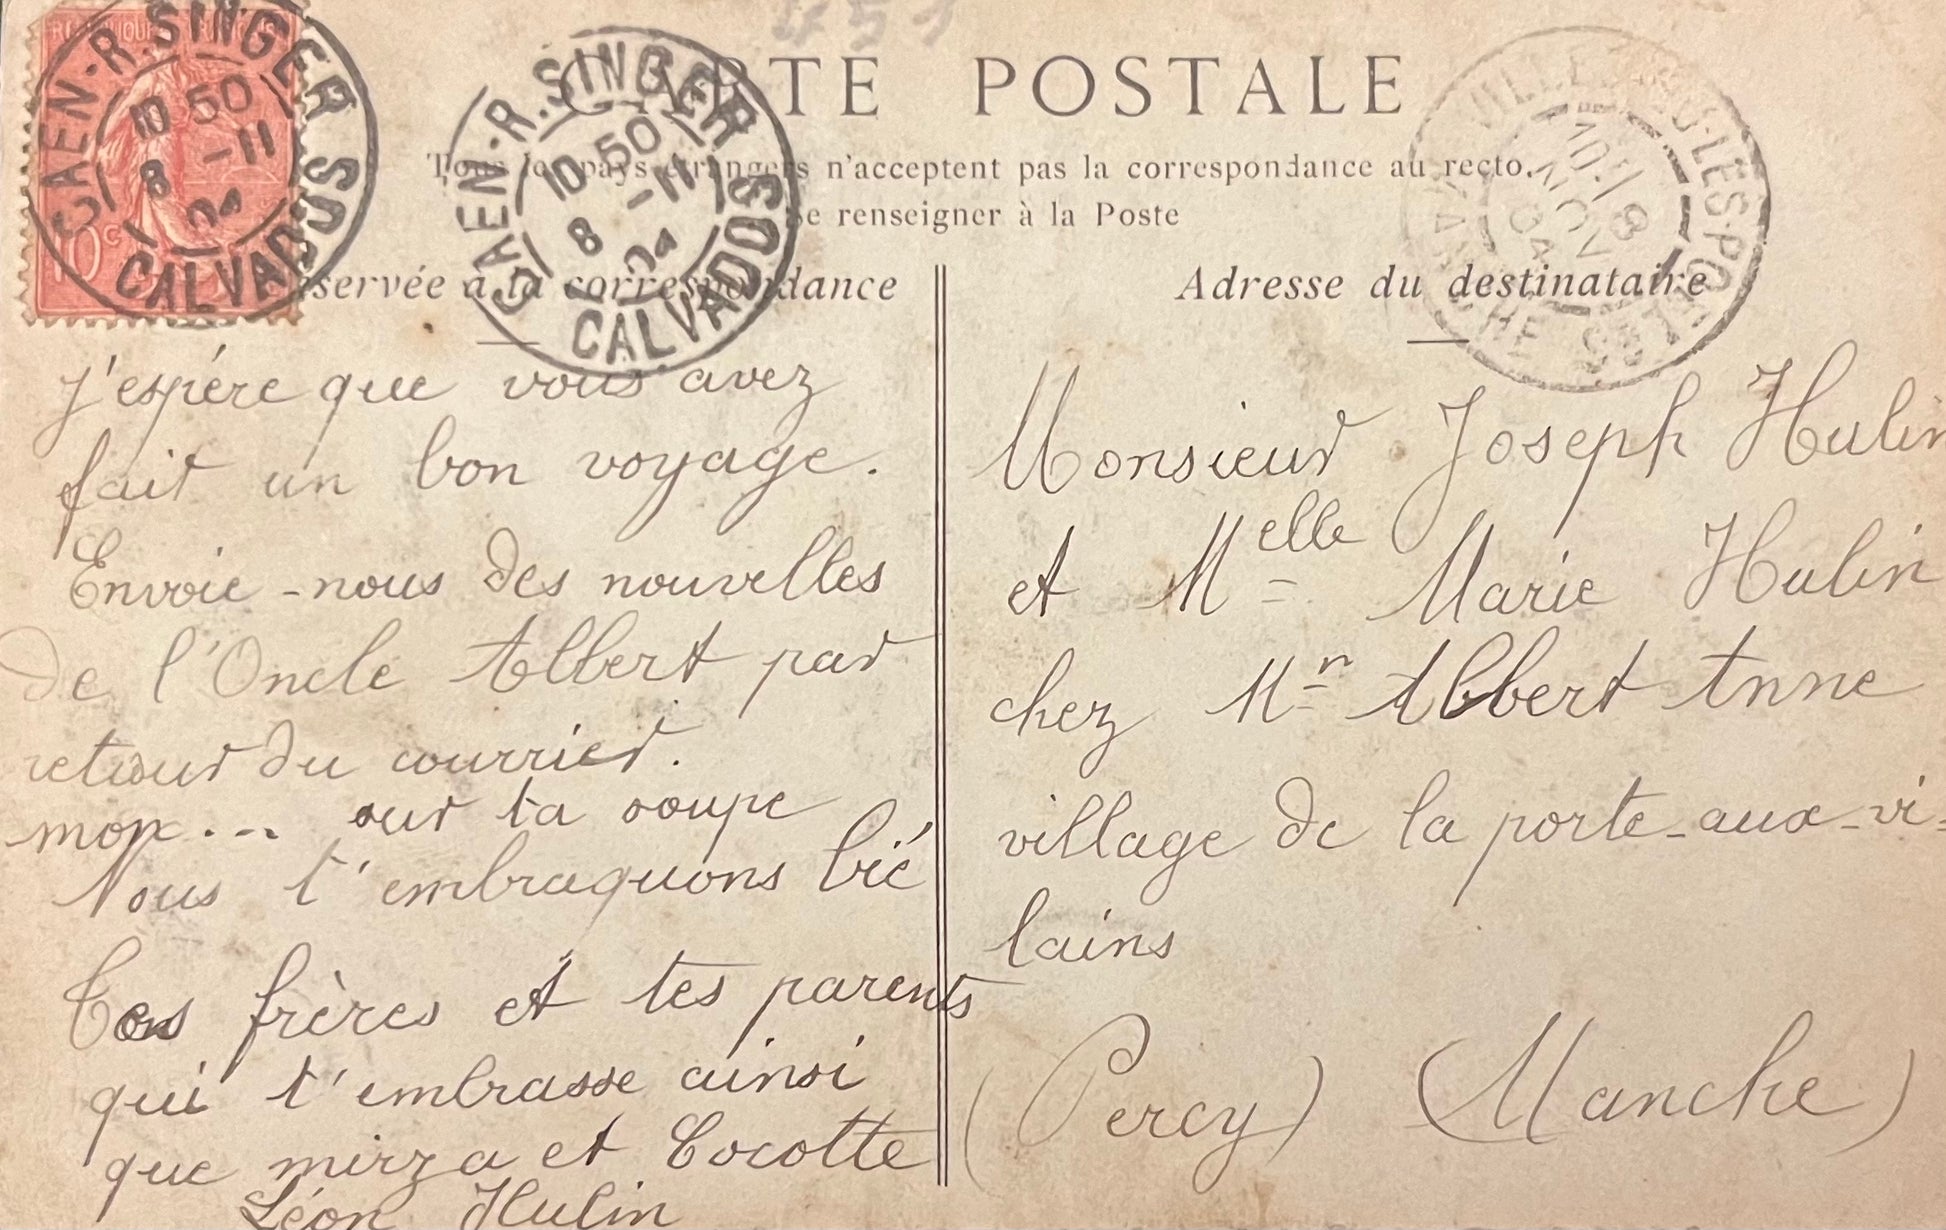 CARTE POSTALE
Tous les pays étrangers n'acceptent pas la correspondance au recto.
Se renseigner à la Poste
servée à la correspondance
Adresse du destinataire
10c
CAEN-R.SINGER
CALVADOS
10 50
8 -11
04
CAEN-R.SINGER
CALVADOS
10 50
8 -11
04
VILLEDIEU-LES-POELES
MANCHE
8
NOV
04
J'espére que vous avez
fait un bon voyage.
Envoie-nous des nouvelles
de l'Oncle Albert par
retour du courrier.
mon... sur ta soupe
Nous t'embraquons bié
Tes frères et tes parents
qui t'embrasse ainsi
que mirza et Cocotte
Léon Hulin
Monsieur Joseph Hulin
et Melle Marie Hulin
chez Mr Albert Anne
village de la porte-aux-vi=
lains
(Percy) (Manche)